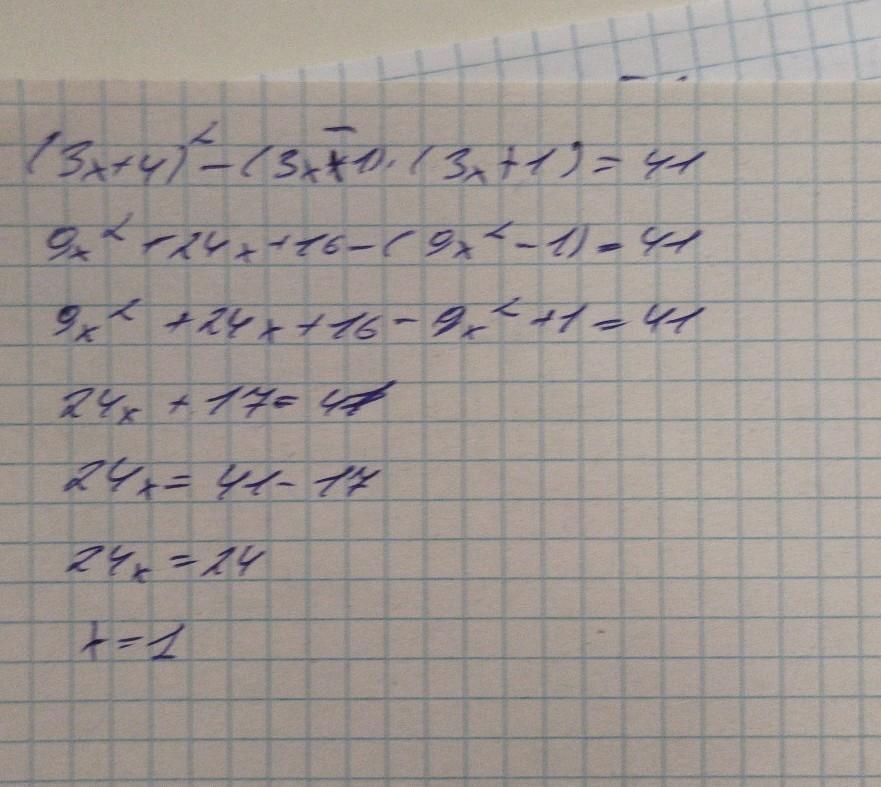 (3x+4)² - (3x-1)·(3x+1) = 41
9x² + 24x + 16 - (9x² - 1) = 41
9x² + 24x + 16 - 9x² + 1 = 41
24x + 17 = 41
24x = 41 - 17
24x = 24
x = 1